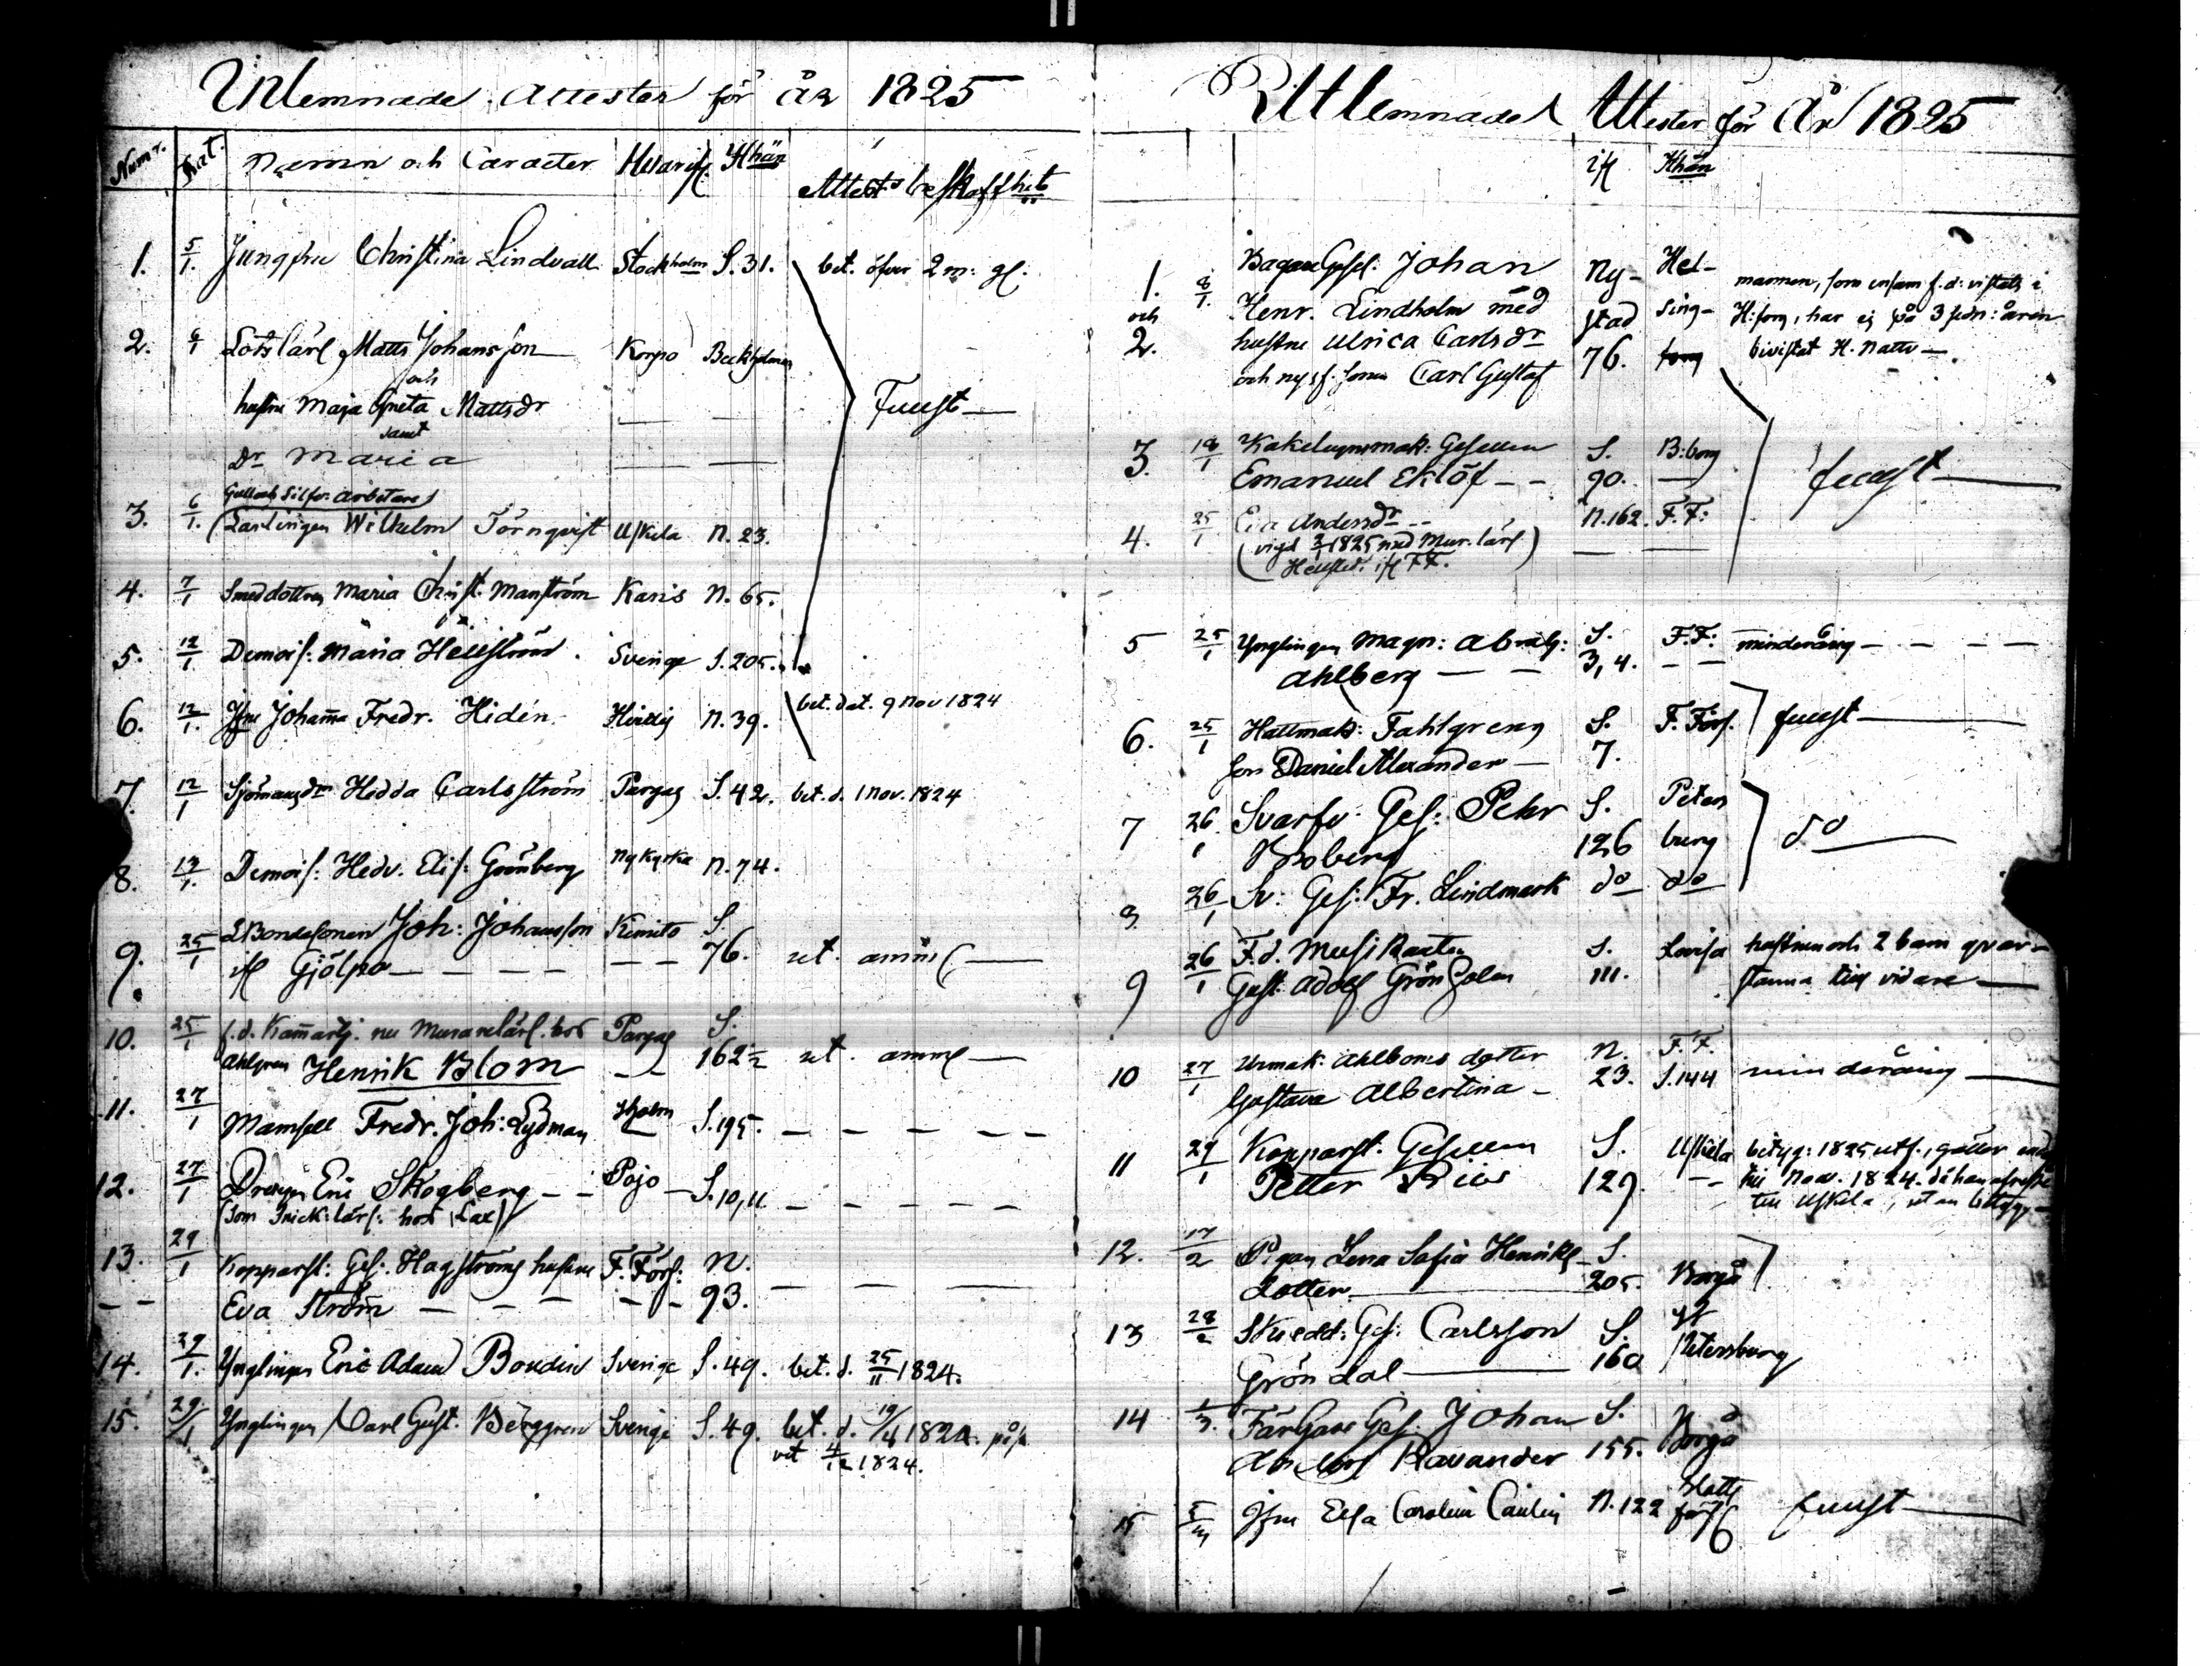 Inlemnade Attester för år 1825
Numr. Dat. Namn och Caracter Hvarifr. Hvan Attest beskaffhet
1. 5/1. Jungfru Christina Lindvall Stockholm S. 31. bet. öfver 2 m: gl.
2. 6/1 Lotslärl Matts Johansson Korpo Beckholmen
och
hustru Maja Greta Mattsdr — Frust —
samt
Dr Maria — —
Guld och Silfv: arbetare
3. 6/1. Lärlingen Wilhelm Törnqvist Uskela N. 23.
4. 7/1 Smeddottren Maria Christ. Manström Karis N. 65.
5. 12/1 Demois: Maria Hellström. Sverige S. 205.
6. 12/1. Jfru Johanna Fredr. Hidén N. 39. bet. dat. 9 Nov 1824
7. 12/1 Sjömansdr Hedda Carlsström Pargas S. 42. bet. d. 1 Nov. 1824
8. 13/1. Demois: Hedv. Elis: Grönberg Nykyrka N. 74.
9. 25/1 Bondesonen Joh: Johansson Kimito S.
ifr Gjölpo — — — — — — 76.
10. 25/1 f.d. nu Murarelärl. hos Pargas S.
Ahlgren Henrik Blom — — 162½
11. 27/1 Mamsell Fredr. Joh: Lydman Stholm S. 195. — — — — —
12. 27/1 Drengen Eric Skogberg — — Pojo — S. 10, 11 — — — —
(som Snick: lärl: hos Lax)
13. 29/1 Kopparsl: Ges: Hagströms hustru F. Förs: N.
— — Eva Ström — — — — — 93. — — — —
14. 29/1. Ynglingen Eric Adam Bondin Sverige S. 49. bet. d. 25/11 1824.
15. 29/1 Ynglingen Carl Gust. Berggren Sverige S. 49. bet. d. 19/4 1824. påsk
vet 4/12 1824.
Utlemnade Attester för År 1825
ifr Hvan
1. 8/1. Bagare Gesel: Johan Ny- Hel- mannen, som ensam f. d: vistats i
och Henr. Lindholm med stad sing- H:fors, har ej på 3 sedn: åren
2. hustru Ulrica Carlsdr 76. fors bivistat H. Nattv —.
och nysf: sonen Carl Gustaf
3. 18/1 Kakelugnsmak: Gesellen S. B:borg
Emanuel Eklöf — — 90. — frust —
4. 25/1 Eva Andersdr — N. 162. F. F:
(vigd 2/1 1825 med Mur. lärl) — —
Hellsted. ifr F F.
5 25/1 Ynglingen Magn: Abrah: S. F. F: minderårig — — — —
Ahlberg — — 3, 4. — —
6. 25/1 Hattmak: Fahlgrens S. F. Förs. frust —
son Daniel Alexander — 7.
7 26/1 Svarfv: Ges: Pehr S. Peters
Broberg 126 burg do —
8 26/1 Sv: Ges: Fr. Lindmark do do
9 26/1 F. d. Musikanten S. Lovisa hustrun och 2 barn qvar-
Gust. Adolf Grönholm 111. stanna till vidare —
10 27/1 Urmak: Ahlboms dotter N. F. F. minderårig —
Gustava Albertina — 23. S. 144
11 29/1 Kopparsl. Gesellen S. Uskela betyg: 1825 utf., gäller endast
Petter Prius 129. — — till Nov. 1824. då han afreste
till Uskela, utan betyg —
12. 17/2 Pigan Lena Sofia Henriks S.
dotter — 205. Borgå
13 28/2 Skredd: Ges: Carlsson S. St
Gröndal — 160 Petersburg
14 1/3. Färgare Ges: Johan S.
Ravander 155. Borgå
15 5/3 Jfru Elsa Carolina Caulin N. 122 Slotts
förs frust —